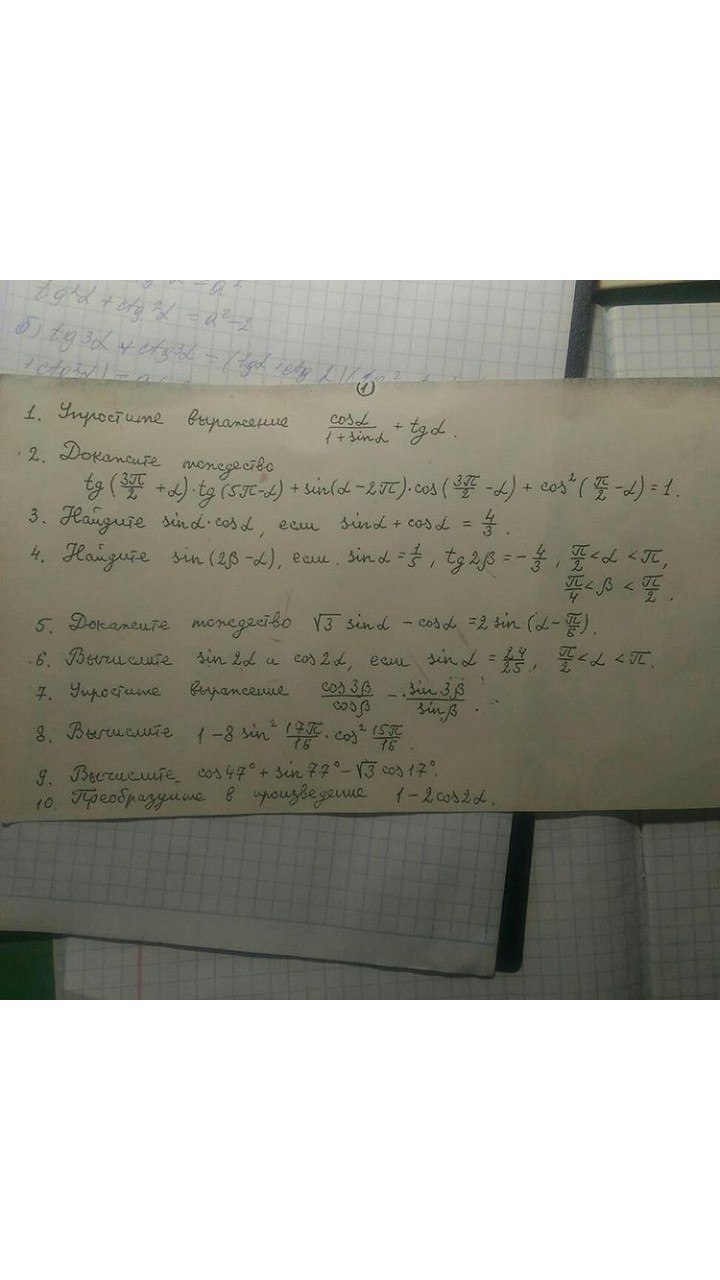 tg²α + ctg²α = a²-2
б) tg³α + ctg³α = (tgα + ctg α)(
①
1. Упростите выражение cosα/(1+sinα) + tgα.
2. Докажите тождество
tg(3π/2 + α)·tg(5π-α) + sin(α-2π)·cos(3π/2 - α) + cos²(π/2 - α) = 1.
3. Найдите sinα·cosα, если sinα + cosα = 4/3.
4. Найдите sin(2β-α), если sinα = 1/5, tg2β = -4/3, π/2 < α < π,
π/4 < β < π/2.
5. Докажите тождество √3 sinα - cosα = 2 sin(α - π/6).
6. Вычислите sin2α и cos2α, если sinα = 24/25, π/2 < α < π.
7. Упростите выражение cos3β/cosβ - sin3β/sinβ.
8. Вычислите 1-8 sin² 17π/16 · cos² 15π/16.
9. Вычислите cos47° + sin77° - √3 cos17°.
10. Преобразуйте в произведение 1-2cos2α.